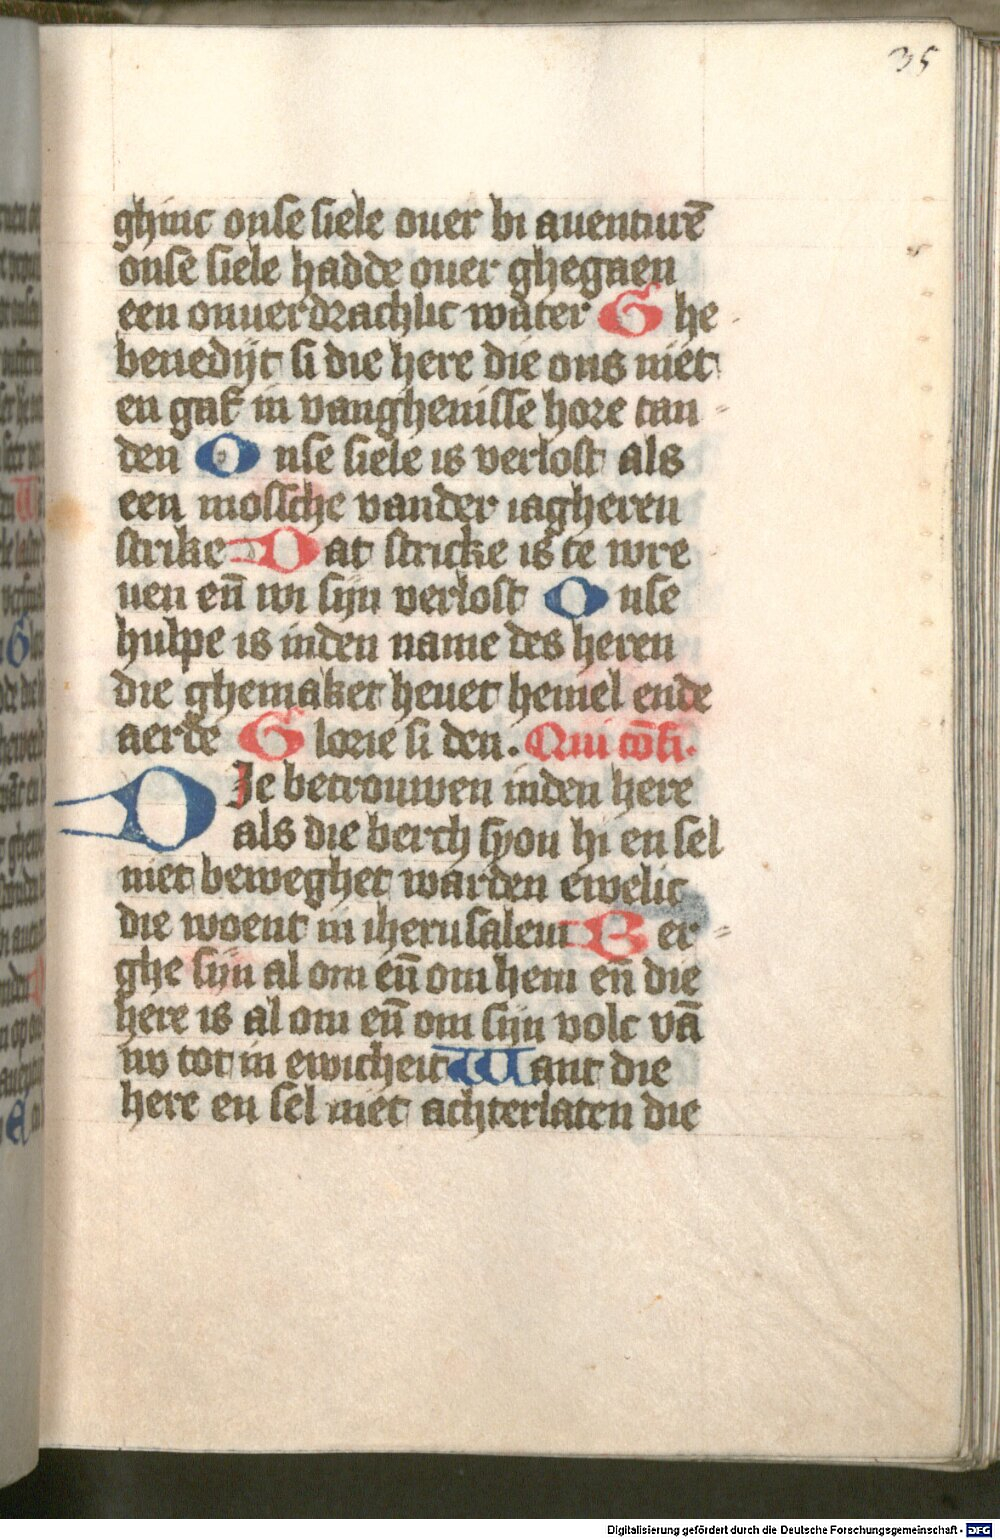 35
ghinc onse siele ouer bi auenturē
onse siele hadde ouer ghegaen
een onuerdrachlic water Ghe
benedijt si die here die ons niet
en gaf in vanghenisse hore tan
den Onse siele is verlost als
een mossche vander iagheren
strike Dat stricke is te wre
uen eñ wi sijn verlost Onse
hulpe is inden name des heren
die ghemaket heuet hemel ende
aerde Glorie si den. Qui cōfi.
DIe betrouwen inden here
als die berch syon hi en sel
niet beweghet warden ewelic
die woent in iherusalem Ber
ghe sijn al om eñ om hem eñ die
here is al om eñ om sijn volc vā
nv tot in ewicheit Want die
here en sel niet achterlaten die
Digitalisierung gefördert durch die Deutsche Forschungsgemeinschaft - DFG